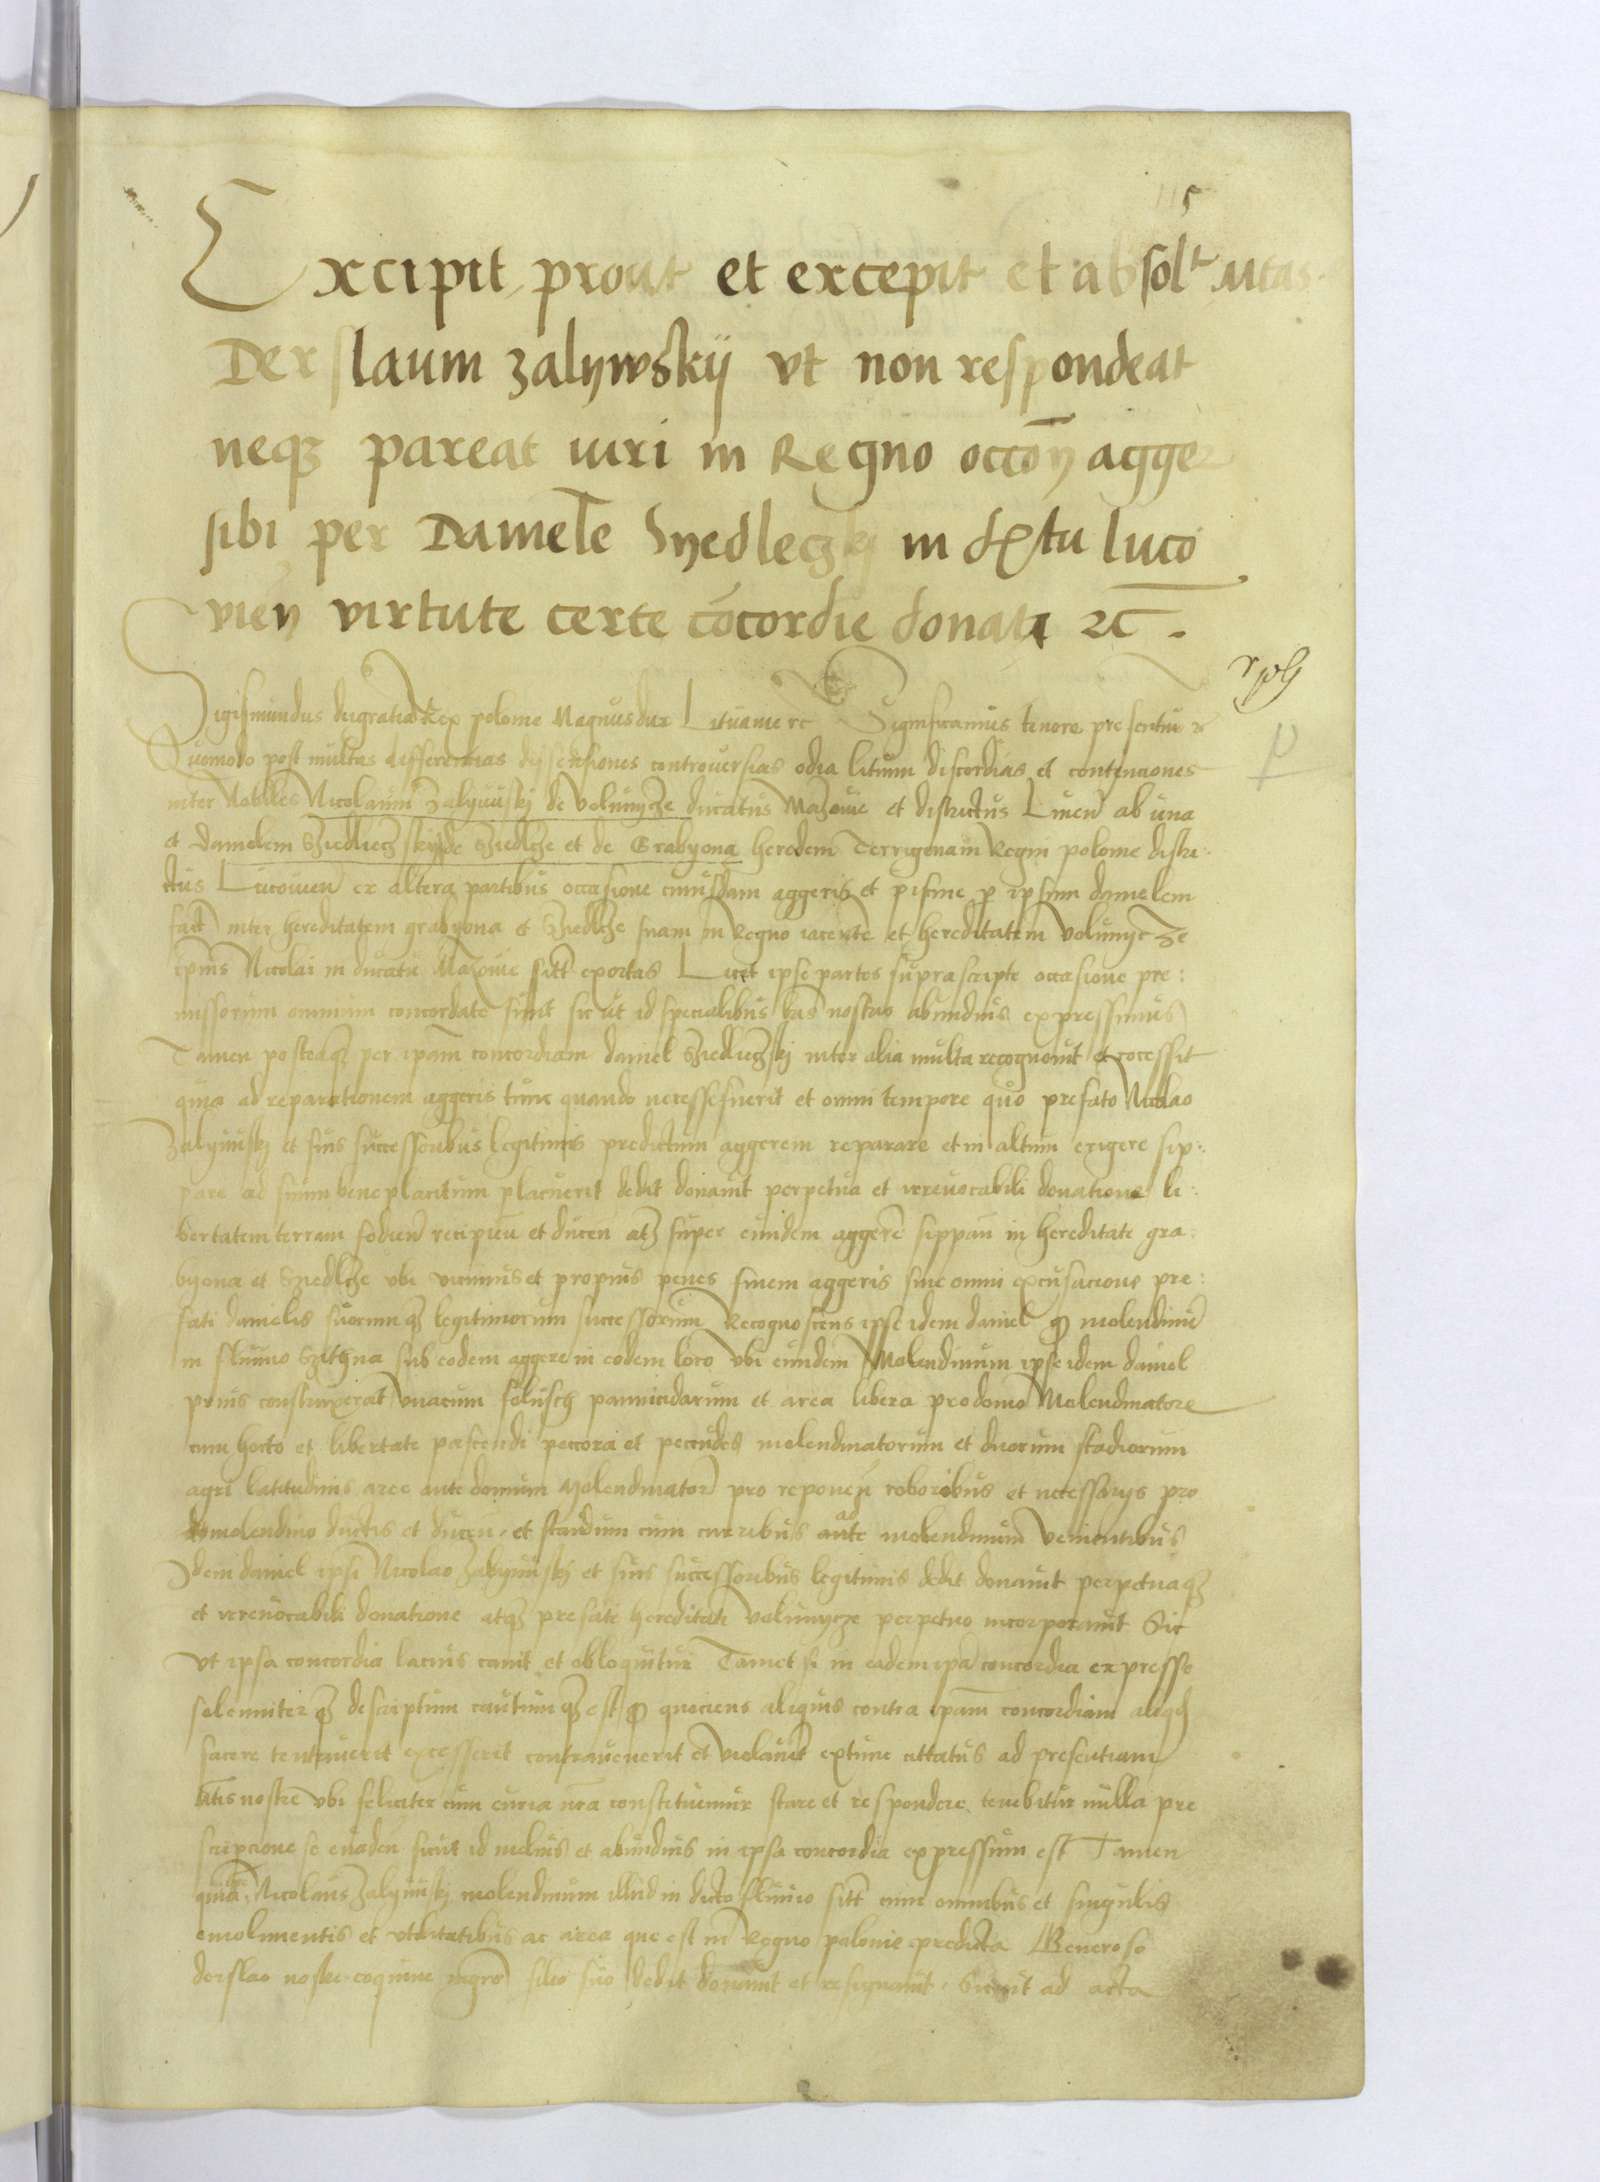 115
Excipit prout et excepit et absolt utas
Derslaum zalywskij vt non respondeat
neqz pareat iuri in Regno occoñ agge
sibi per Daniele Syedleczkj in dxtu luco
vieñ virtute certe cōcordie donate zc .
Sigismundus dei gratia Rex polonie Magnus dux Lituanie zc Significamus tenore presentiu
Quomodo post multas differentias dissensiones controuersias odia litium discordias et contenciones
inter Nobiles Nicolaum Zalywskj de volunycze ducatus Mazouie et districtus Liuen ab una
et Danielem Schiedlieczskij de Schiedlcze et de Grabyona heredem Terrigenam Regni polonie distri-
ctus Lucouien ex altera partibus occasione cuiusdam aggeris et piscine p ipsum danielem
fact inter hereditatem grabyona et Schiedlcze suam in Regno iacente et hereditatem volunycze
ipius Nicolai in ducatu Mazouie sitt exortas Licet ipse partes suprascripte occasione pre:
missorum omnium concordate sunt sicut id specialibus lris nostris abundius expressimus
Tamen posteaqz per ipam concordiam daniel Schiedlieczskj inter alia multa recognouit et cocessit
quia ad reparationem aggeris tunc quando necesse fuerit et omni tempore quo prefato Nicolao
Zalywskj et suis successoribus legitimis predictum aggerem reparare et in altum erigere sip:
pare ad suum beneplacitum placuerit dedit donauit perpetua et irreuocabili donatione li:
bertatem terram fodien recipien et ducen atqz super eundem aggere sippan in hereditate gra
byona et Schiedlcze vbi vicinius et propius penes finem aggeris sine omni excusacione pre:
fati danielis suorumqz legitimorum successorum Recognoscens ipse idem daniel qz molendinu
in fluuio sub eodem aggere in eodem loco vbi eundem Molendinum ipse idem daniel
prius construxerat vnacum pannicidarum et area libera pro domo Molendinatore
cum horto et libertate pascendi peccora et peccudes molendinatorum et duorum stadiorum
agri latitudinis aree ante domum Molendinator pro reponen roboribus et necessarijs pro
molendino ductis et ducen et standum cum curribus ante ad molendinum venientibus
Idem daniel ipsi Nicolao Zalywskj et suis successoribus legitimis dedit donauit perpetuaqz
et irreuocabili donatione atqz prefate hereditati volunycze perpetuo incorporauit Sic
vt ipsa concordia lacius canit et obloquitur Tamet si in eadem ipa concordia expresse
solenniterqz descriptum cautumqz est qz quociens aliquis contra ipam concordiam aliqd
facere tentauerit excesserit contrauenerit et violauit extunc cittatus ad presentiam
Mtis nostre vbi feliciter cum curia nra constituemur stare et respondere tenebitur nulla pre
scripcione se euaden sicut id melius et abundius in ipsa concordia expressum est Tamen
quia Nicolaus Zalywskj molendinum illud in dicto fluuio sitt cum omnibus et singulis
emolumentis et vtilitatibus ac area que est in Regno polonie predicta Generoso
derslao nostre coquine mgro filio suo dedit donauit et resignauit Sicuit ad acta